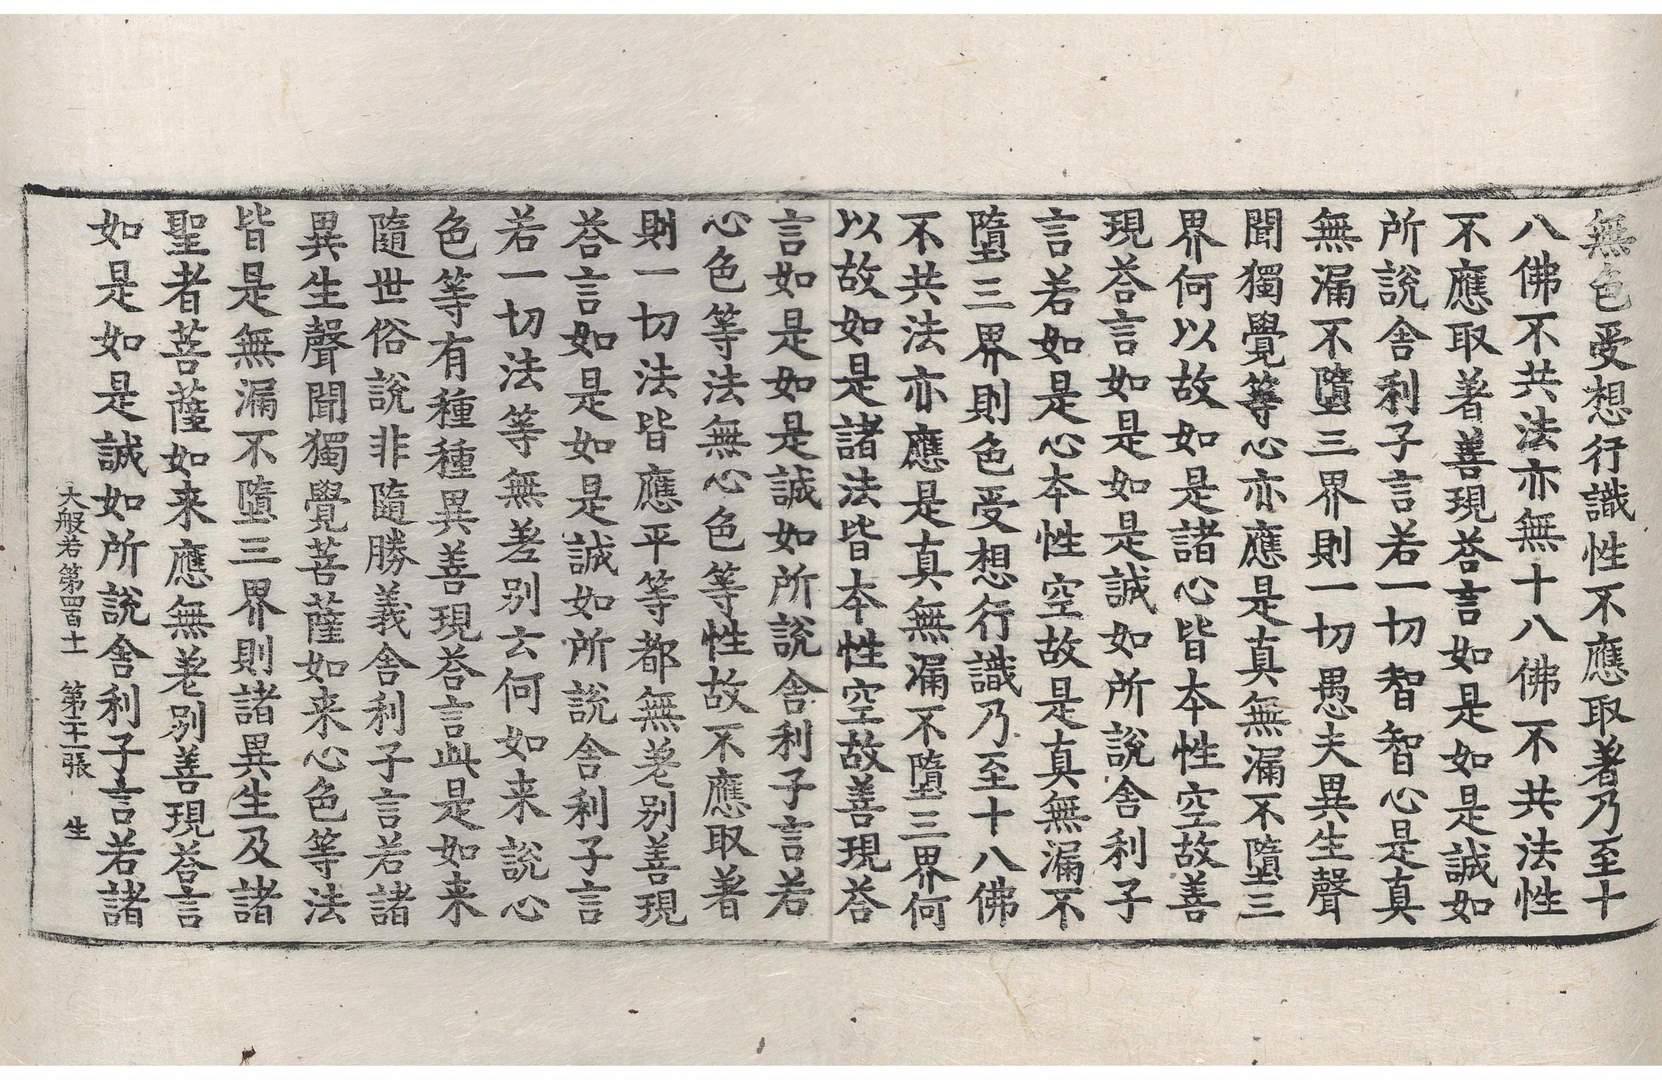 無色受想行識性不應取著乃至十
八佛不共法亦無十八佛不共法性
不應取著善現荅言如是如是誠如
所說舍利子言若一切智智心是真
無漏不墮三界則一切愚夫異生聲
聞獨覺等心亦應是真無漏不墮三
界何以故如是諸心皆本性空故善
現荅言如是如是誠如所說舍利子
言若如是心本性空故是真無漏不
墮三界則色受想行識乃至十八佛
不共法亦應是真無漏不墮三界何
以故如是諸法皆本性空故善現荅
言如是如是誠如所說舍利子言若
心色等法無心色等性故不應取著
則一切法皆應平等都無差別善現
荅言如是如是誠如所說舍利子言
若一切法等無差別云何如来說心
色等有種種異善現荅言此是如来
隨世俗說非隨勝義舍利子言若諸
異生聲聞獨覺菩薩如来心色等法
皆是無漏不墮三界則諸異生及諸
聖者菩薩如来應無差別善現荅言
如是如是誠如所說舍利子言若諸
大般若第四百十一 第二十一張 生